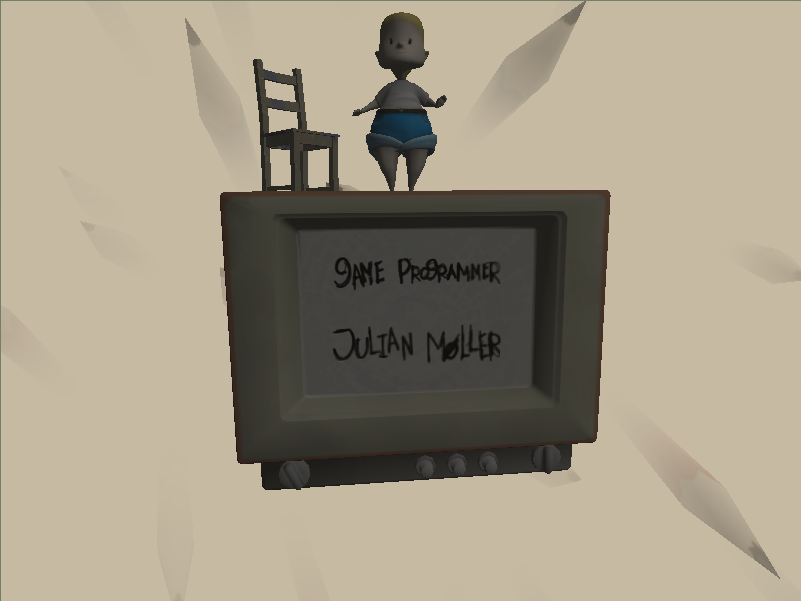 GAME PROGRAMMER
JULIAN MØLLER